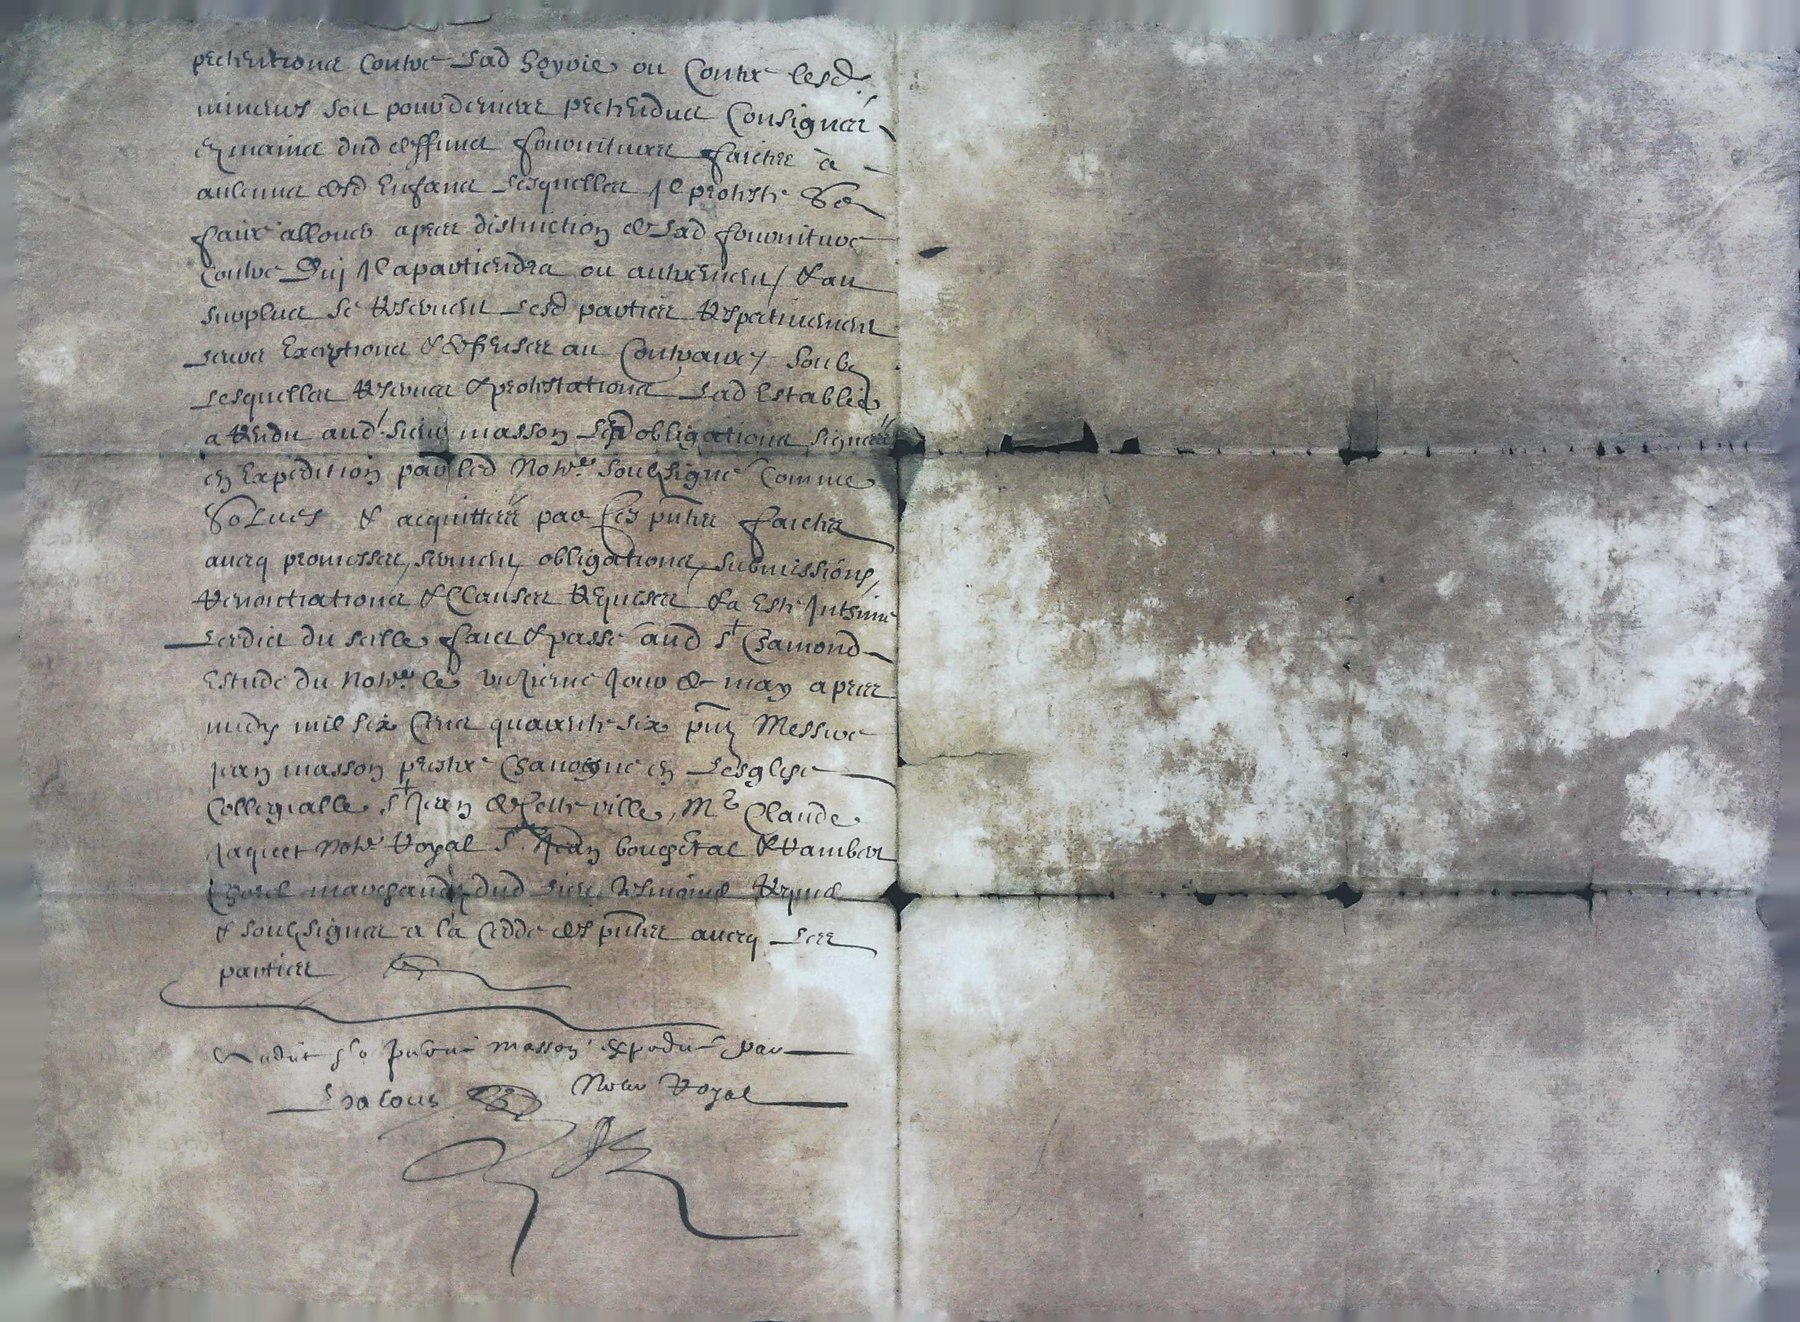 pretentions contre lad hoyrie ou contre lesd.
mineurs soit pour deniers pretendus consignes
es mains dud deffunct fournitures faictes a
aulcuns desd enfans lesquelles il proteste se
faire allouer apres distinction de lad fourniture
contre qui il apartiendra ou autrement, & au
surplus se reservent lesd parties respectivement
leurs exceptions & deffenses au contraire, soubz
lesquelles reserves & protestations lad establie
a rendu aud. sieur masson lesd obligations signees
en expedition par led Notre. soubsigne comme
solues & acquittees par ces pntes faictes
avecq promesses, serment, obligations, submissions,
renontiations & clauses requises & a este
du selle faict & passe aud St Chamond
estude du Notre. le unzieme jour de may apres
midy mil six cens quarante six pntz Messire
Jean masson prestre chanoyne en lesglise
collegialle St Jean de cette ville, Me Claude
Jaquet Notre royal Sr. Jean bouchetal & Rambert
marchandz dud lieu tesmoins requis
& soubsignes a la cedde des pntes avecq les
parties
masson expedie par
Notre Royal